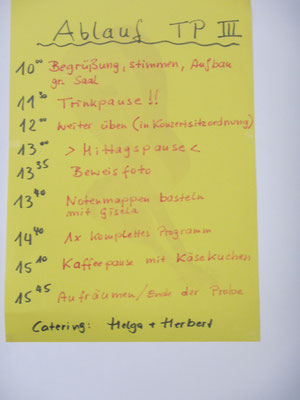 Ablauf TP III
10⁰⁰ Begrüßung, stimmen, Aufbau
gr. Saal
11³⁰ Trinkpause !!
12⁰⁰ weiter üben (in Konzertsitzordnung)
13⁰⁰ > Mittagspause <
13³⁵ Beweisfoto
13⁴⁰ Notenmappen basteln
mit Gisela
14⁴⁰ 1x komplettes Programm
15¹⁰ Kaffeepause mit Käsekuchen
15⁴⁵ Aufräumen / Ende der Probe
Catering: Helga + Herbert